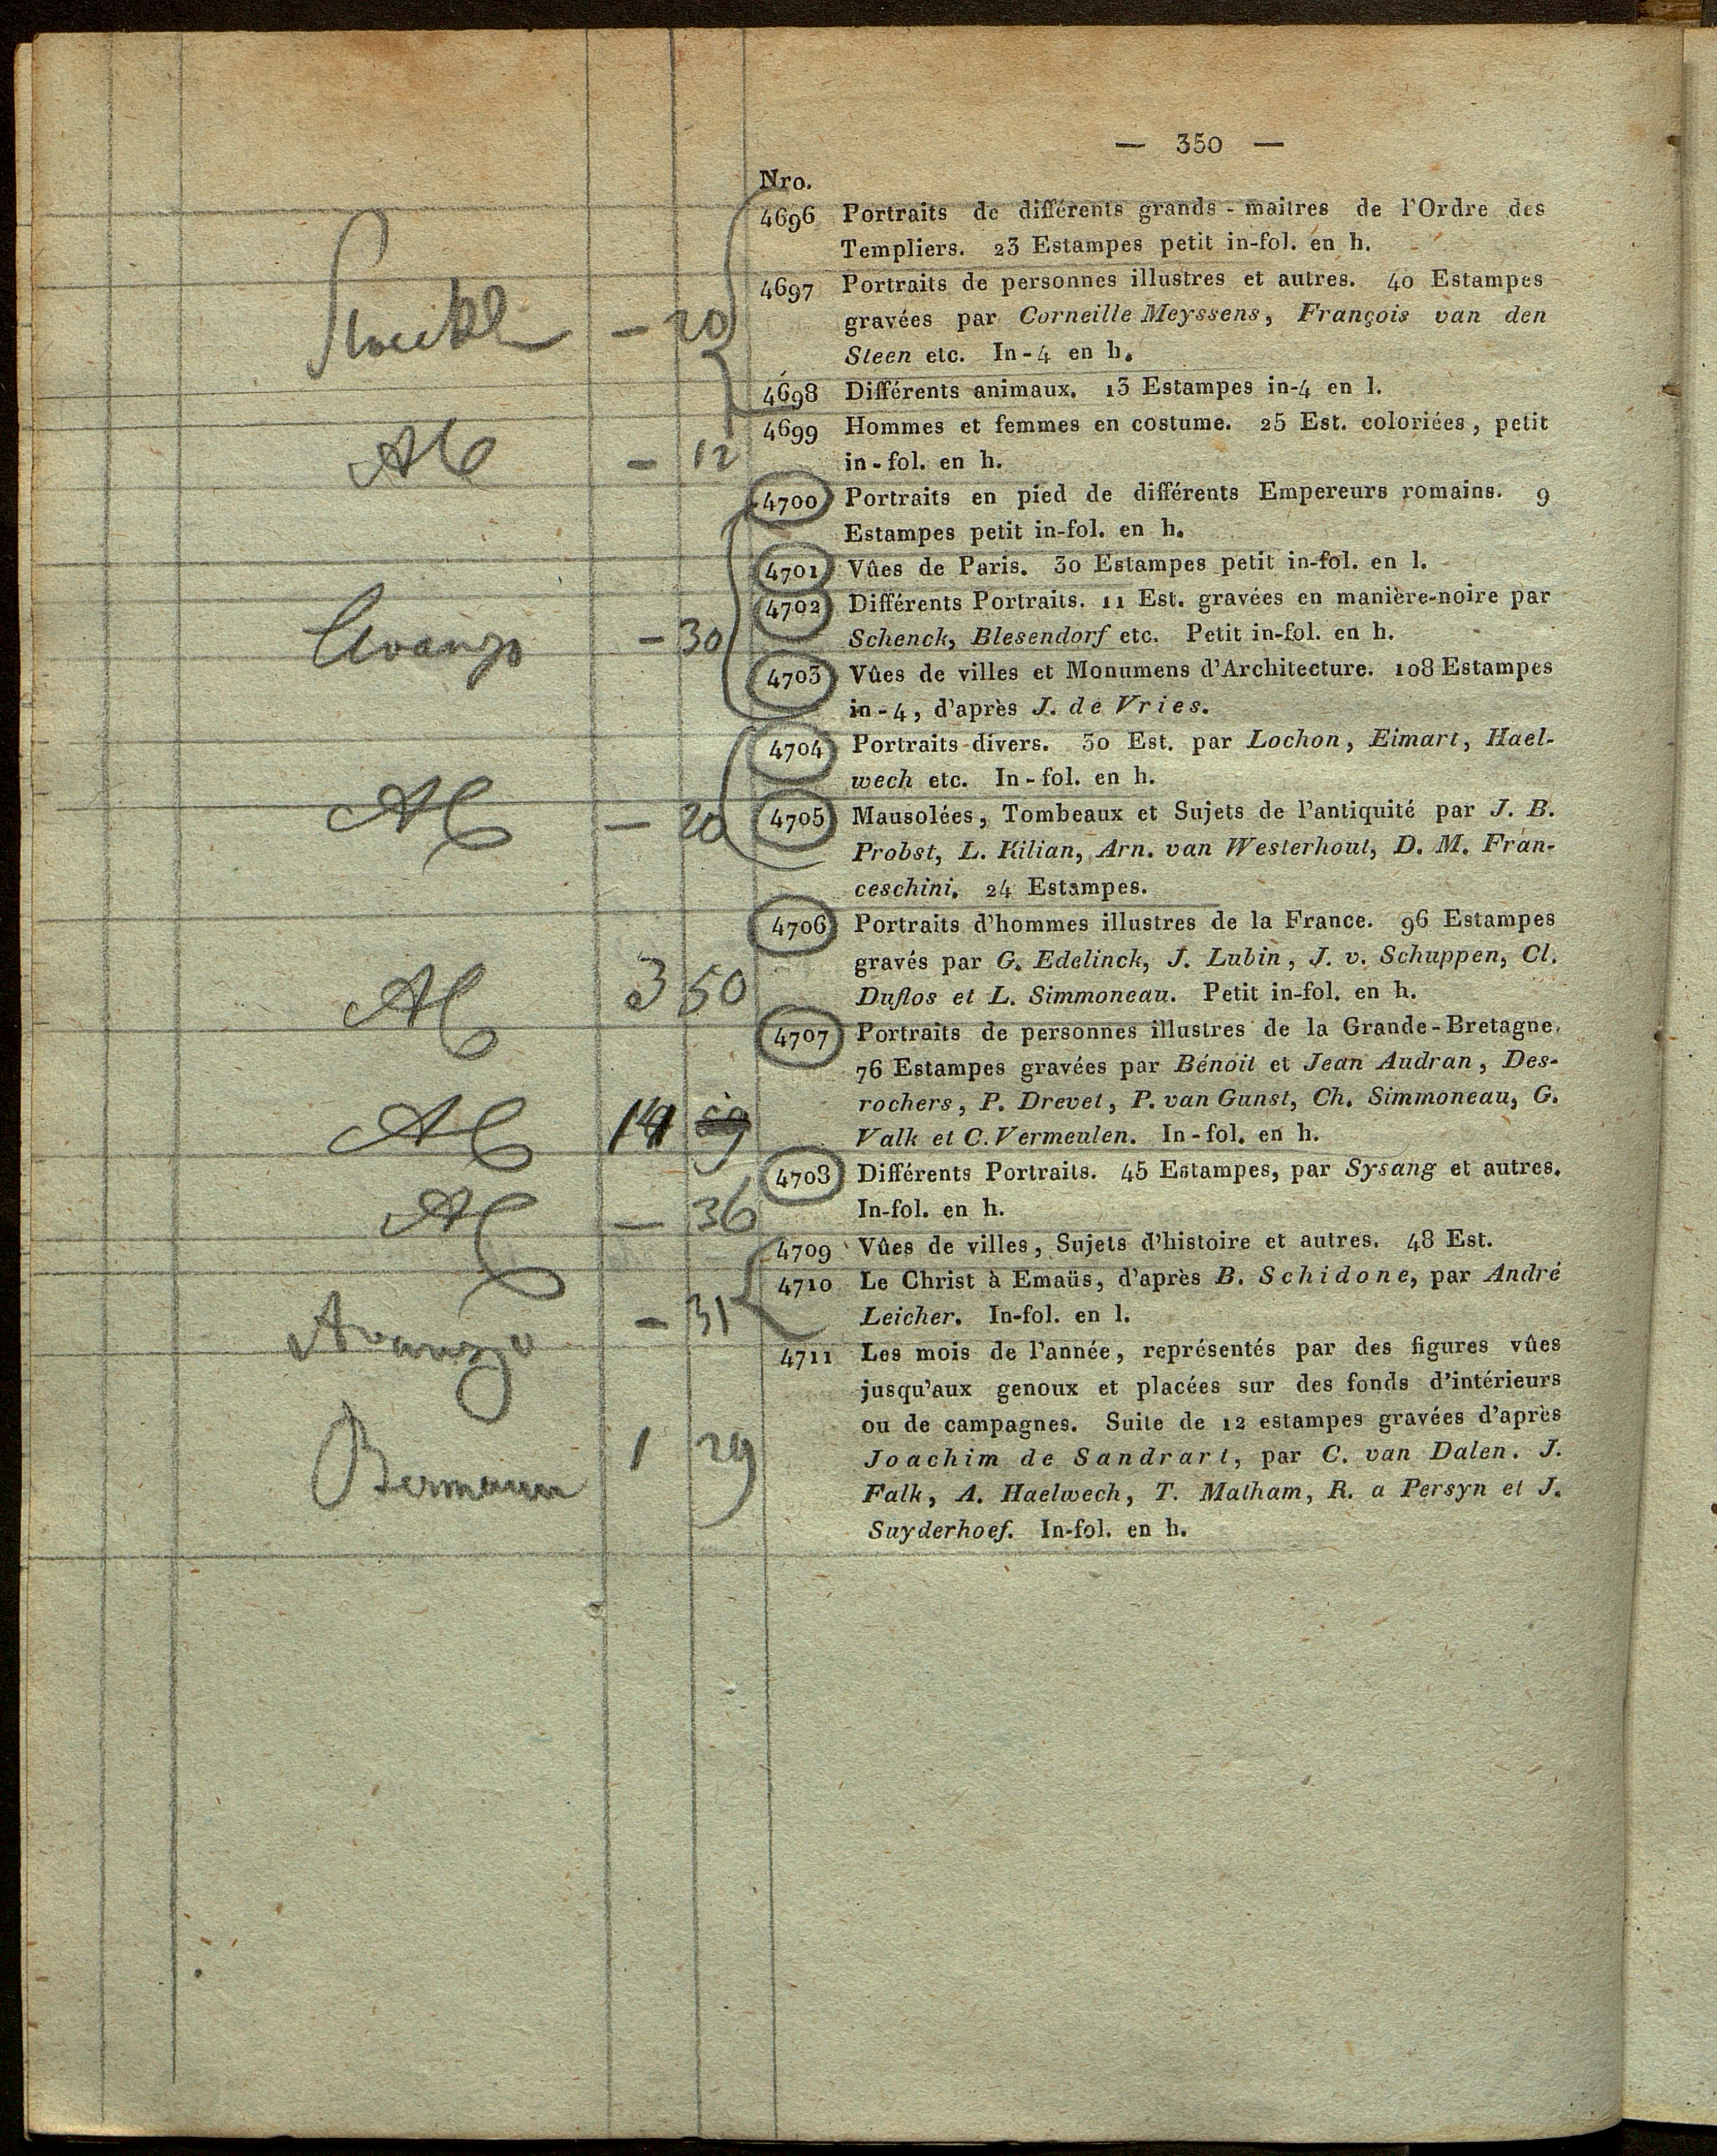 — 350 —
Nro.
4696 Portraits de différents grands-maitres de l'Ordre des
Templiers. 23 Estampes petit in-fol. en h.
4697 Portraits de personnes illustres et autres. 40 Estampes
gravées par Corneille Meyssens, François van den
– 20
Steen etc. In-4 en h.
4698 Différents animaux. 13 Estampes in-4 en l.
4699 Hommes et femmes en costume. 25 Est. coloriées, petit
– 12
in-fol. en h.
4700 Portraits en pied de différents Empereurs romains. 9
Estampes petit in-fol. en h.
4701 Vûes de Paris. 30 Estampes petit in-fol. en l.
4702 Différents Portraits. 11 Est. gravées en manière-noire par
– 30
Schenck, Blesendorf etc. Petit in-fol. en h.
4703 Vûes de villes et Monumens d'Architecture. 108 Estampes
in-4, d'après J. de Vries.
4704 Portraits divers. 30 Est. par Lochon, Eimart, Hael-
wech etc. In-fol. en h.
– 20
4705 Mausolées, Tombeaux et Sujets de l'antiquité par J. B.
Probst, L. Kilian, Arn. van Westerhout, D. M. Fran-
ceschini. 24 Estampes.
4706 Portraits d'hommes illustres de la France. 96 Estampes
gravés par G. Edelinck, J. Lubin, J. v. Schuppen, Cl.
3 50
Duflos et L. Simmoneau. Petit in-fol. en h.
4707 Portraits de personnes illustres de la Grande-Bretagne.
76 Estampes gravées par Bénoit et Jean Audran, Des-
rochers, P. Drevet, P. van Gunst, Ch. Simmoneau, G.
Valk et C. Vermeulen. In-fol. en h.
4708 Différents Portraits. 45 Estampes, par Sysang et autres.
– 36
In-fol. en h.
4709 Vûes de villes, Sujets d'histoire et autres. 48 Est.
4710 Le Christ à Emaüs, d'après B. Schidone, par André
– 31
Leicher. In-fol. en l.
4711 Les mois de l'année, représentés par des figures vûes
jusqu'aux genoux et placées sur des fonds d'intérieurs
ou de campagnes. Suite de 12 estampes gravées d'après
Bermann 1 29
Joachim de Sandrart, par C. van Dalen. J.
Falk, A. Haelwech, T. Matham, R. a Persyn et J.
Suyderhoef. In-fol. en h.